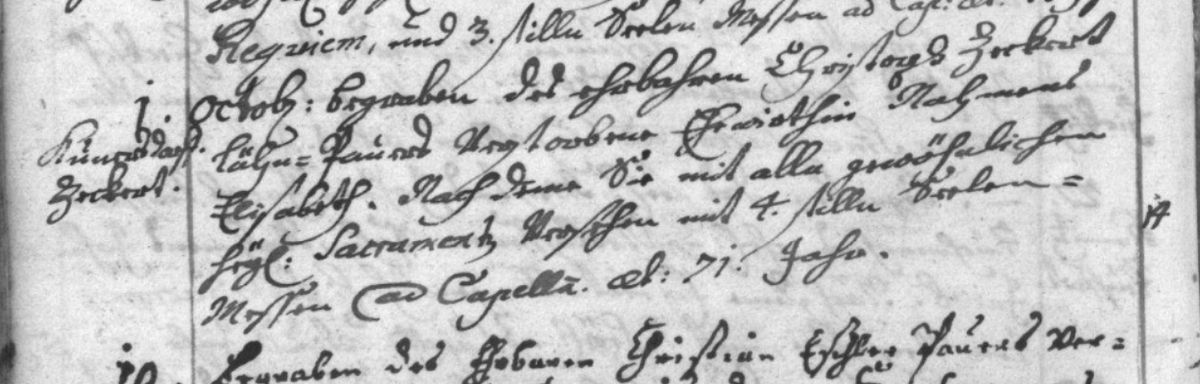 Requiem, und 3. stille Seelen Messen ad
1. Octob: begraben des ehrbahren Christoph Zeckert
Kuntzdorf. Lähn-Paurs Verstorbene Ehewirthin Nahmens
Zeckert. Elisabeth. Nach deme Sie mit alle gewöhnlichen
heÿl: Sacramentẜ Versehen mit 4. stille Seelen=
14
Messen ad Capellā. æt: 71. Jahr.
10. Begraben des Ehrbaren Christian Eschler Paurs ver=